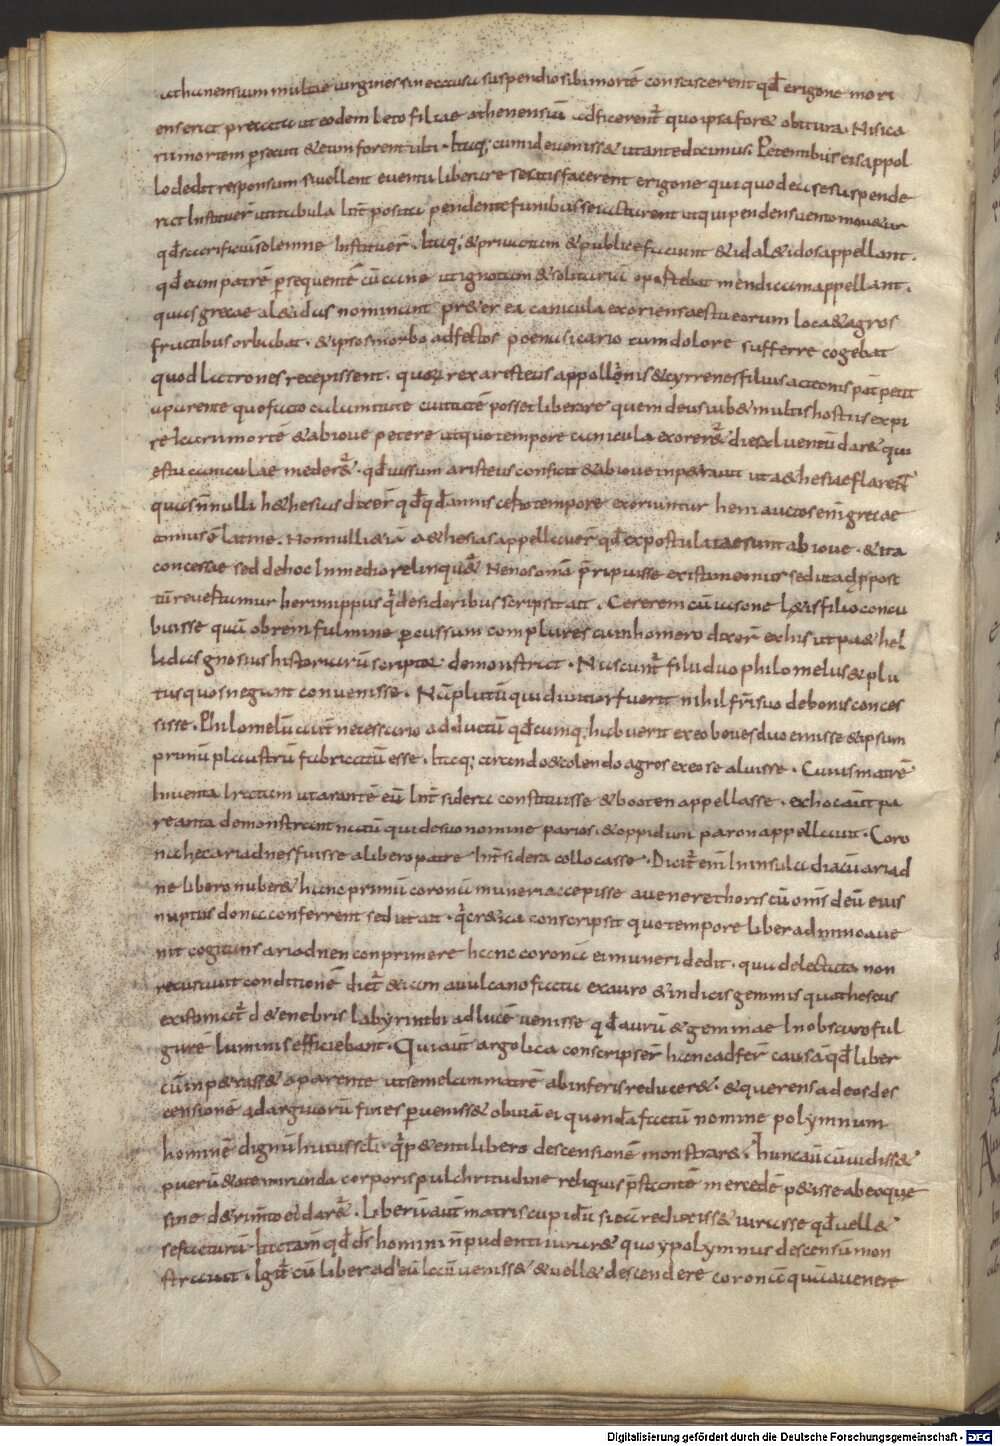 athenensium multae virgines sine causa suspendio sibi mortē consciscerent qđ erigone mori
ens erat precata ut eodem leto filiae athenensiū adficerent̄ quo ipsa for& obitura. Nisi ica
ri mortem persecuti & eum forent ulti. Itaq; cum id evenisse ut ante diximus. Petentibus eis appol
lo dedit responsum si vellent eventu liberare se satisfacerent erigone qui quod ea se suspende
rat Instituer̄ uti tabula Int̄ posita pendente funibus se iactarent ut qui pendens vento mov&ur
qđ sacrificiū solemne Instituer̄. Itaq; & privatim & publice faciunt & id al&idos appellant.
qđ eum patrē persequentē cū cane ut ignotum & solitariū oportebat mendicum appellant.
quas grecae al&idas nominant pr&er ea canicula exoriens aestu eorum loca & agros
fructibus orbabat. & ipsos morbo adfectos poenas icario cum dolore sufferre cogebat
quod latrones recepissent. quorum rex aristeus appollonis & cyrrenes filius acteonis pat̄ petit
a parente quo facto calamitate civitatē posset liberare quem deus iub& multis hostiis expi
re Icari mortē & ab iove petere ut quo tempore canicula exorer&̄ dies xl ventū dar& qui
estu caniculae meder&̄. qđ iussum aristeus conficit & ab iove inp&ravit ut a&hesiae flarent̄
quas n̄nulli h&hesias dixer̄ qđ qđ annis certo tempore exoriuntur heni auctos enī grecae
annius ē latine. Nonnulli &iā a&hesias appellaver̄ qđ expostulatae sunt ab iove. & ita
concessae sed de hoc In medio relinqu&̄ Ne nos omā p̄ripuisse existimemur sed ut ad p̄post
tū revertamur hermippus q̄ de sideribus scripsit ait. Cererem cū iasone l&is filio concu
buisse quā ob rem fulmine percussum complures cum homero dixer̄ ex his ut pa&hel
lidas gnosius historiarū scriptor demonstrat. Nascunt̄ filii duo philomelus & plu
tus quos negant convenisse. Nā plutū qui divitior fuerit nihil fr̄i suo de bonis conces
sisse. Philomelū aut̄ necessario adductū qđcumq; habuerit ex eo boves duo emisse & ipsum
primū plaustrū fabricatū esse. Itaq; arando & colendo agros ex eo se aluisse. Cuius matrē
Inventa Iratum ut arantē eū Int̄ sidera constituisse & booten appellasse. ex hoc aut̄ pa
reanta demonstrant natū qui de suo nomine parios. & oppidum paron appellavit. Coro
na hec ariadnes fuisse a libero patre Int̄ sidera collocasse. Dicit̄ enī In insula dia cū ariad
ne libero nuber& hanc primū coronā muneri accepisse a venere & horis cū om̄s deū eius
nuptiis dona conferrent sed ut ait. q̄ cr&ica conscripsit quo tempore liber ad minoa ve
nit cogitans ariadnen conprimere hanc coronā ei muneri dedit. qua delectata non
recusavit conditionē dicit̄ &iam a vulcano facta ex auro & indicis gemmis qua theseus
existimat̄ d& enebris labyrinthi ad lucē venisse qđ aurū & gemmae In obscuro ful
gorē luminis efficiebant. Qui aut̄ argolica conscripser̄ hanc adfer̄ causā qđ liber
cū inp&rass& a parente ut semelam matrē ab inferis reducer&. & querens ad eos des
censionē ad argivorū fines perveniss& obviā ei quendā factū nomine polymnum
hominē dignū huius scl̄i. q̄ p&enti libero descensionē monstrar&. hunc aut̄ cū vidiss&
puerū & ate miranda corporis pulchritudine reliquis p̄stantē mercedē p&isse ab eo que
sine d&rim̄to ei dar&̄. liberū aut̄ matris cupidū si eā reduxiss& iurasse qđ vell&
se facturū. Ita tam̄ qđ ds̄ homini n̄ pudenti iurar& quo ypolymnus descensiū mon
stravit. Igit̄ cū liber ad eū locū veniss& & vell& descendere coronā quā a venere
Digitalisierung gefördert durch die Deutsche Forschungsgemeinschaft - DFG